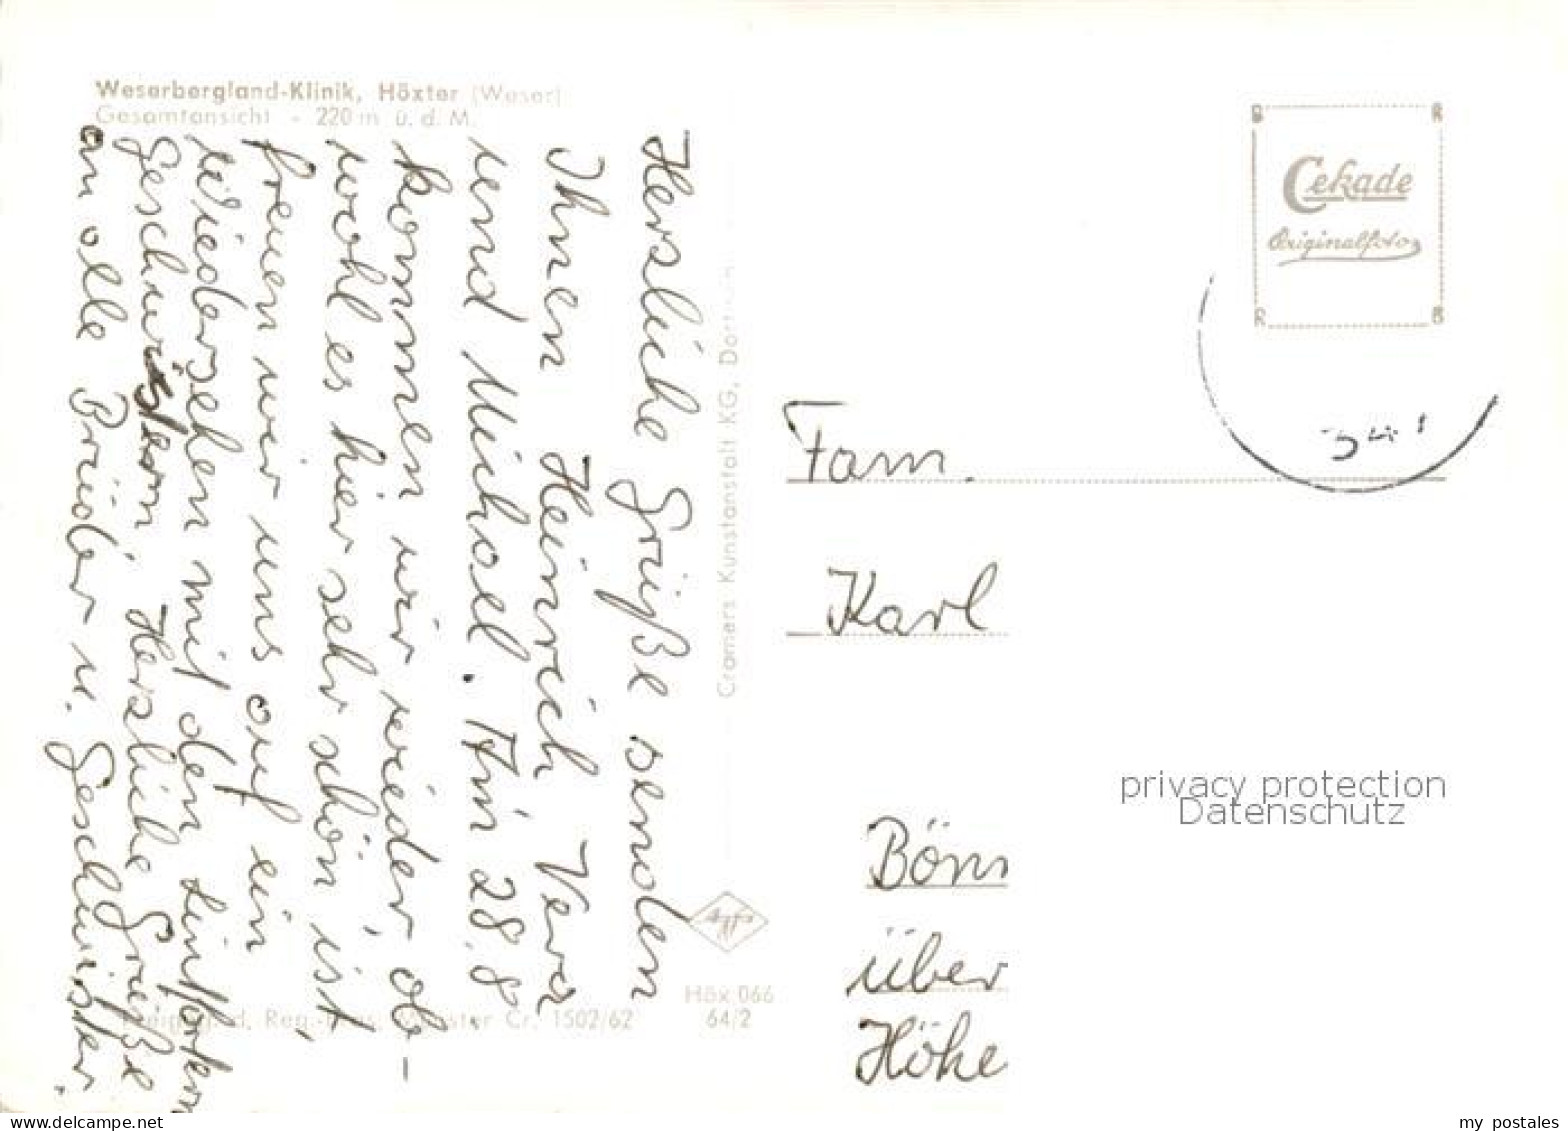 Weserbergland-Klinik, Höxter (Weser)
Gesamtansicht - 220 m ü. d. M.
Herzliche Grüße senden
Ihnen Heinrich Vera
und Michael. Am 28.8.
kommen wir wieder, ob-
wohl es hier sehr schön ist,
freuen wir uns auf ein
Wiedersehen mit den
Geschwistern Herzliche Grüße
an alle Brüder u. Geschwister.
Cramers Kunstanstalt KG, Dortmund
Agfa
Höx 066
64/2
Freigeg. d. Reg.-Präs. Münster Cr. 1502/62
B R
Cekade
Originalfoto
R B
Fam.
Karl
Bönn
über
Höhe
privacy protection
Datenschutz
www.delcampe.net
my_postales